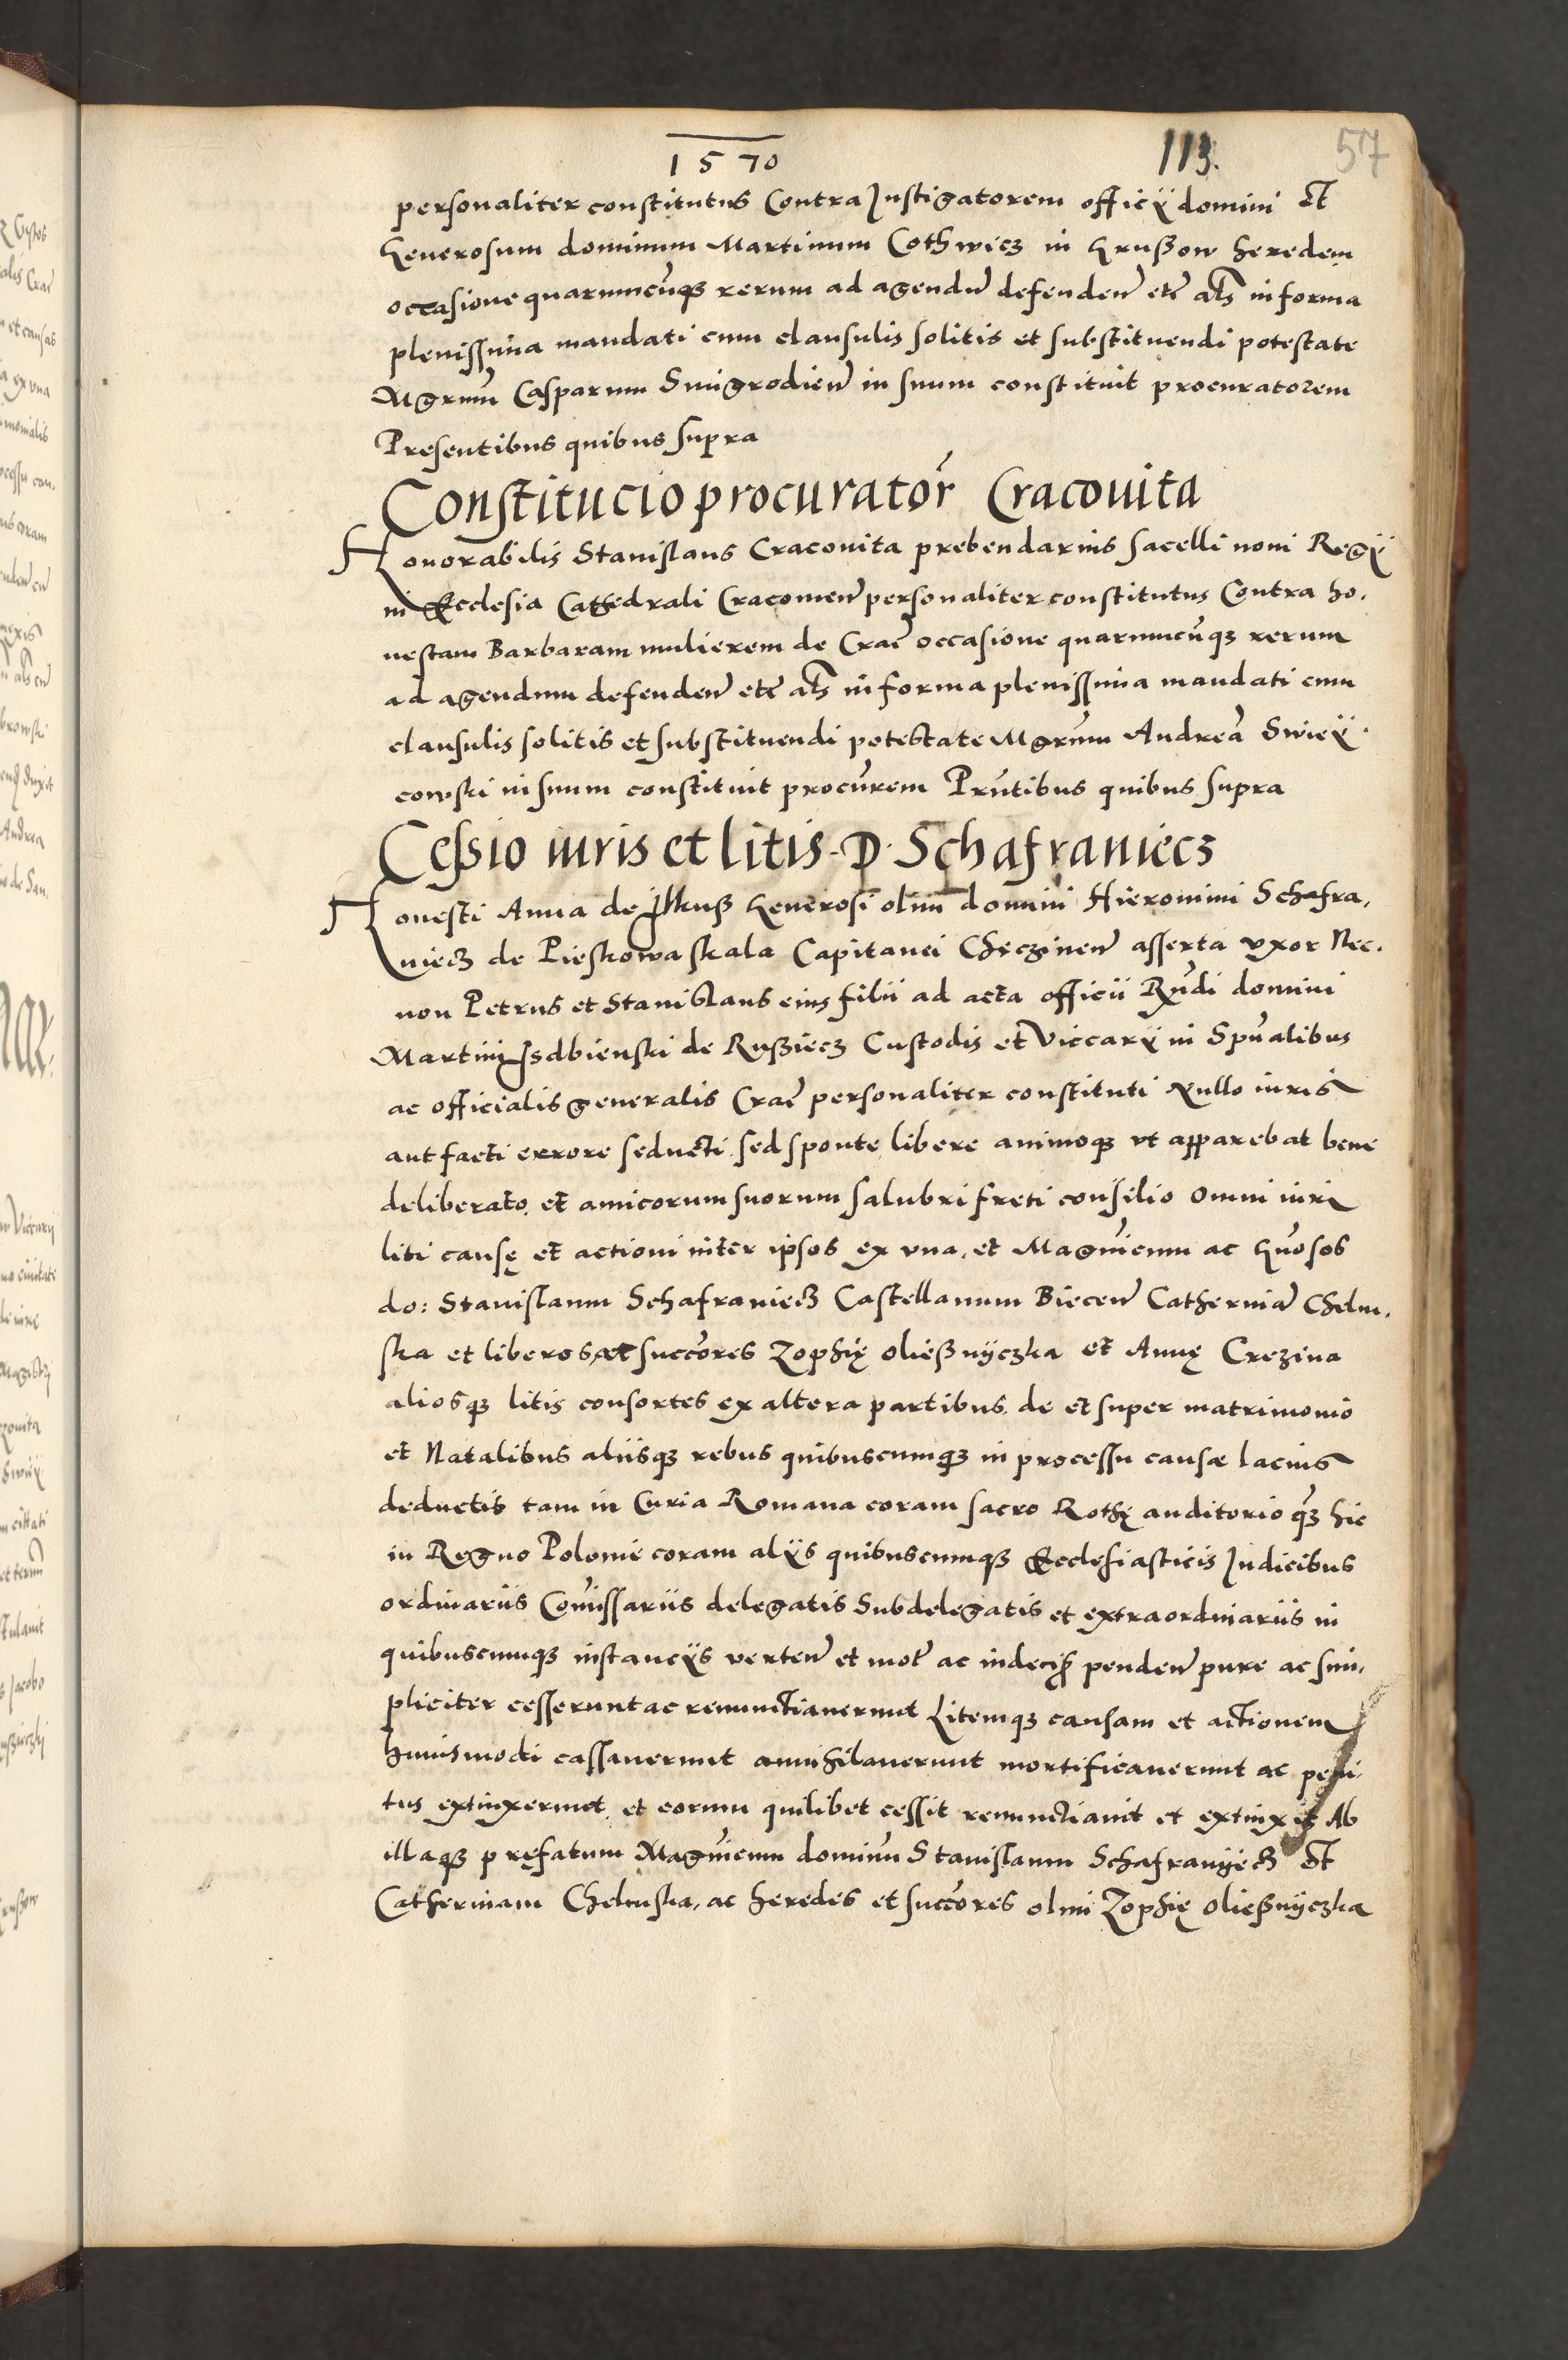 1570 113. 57
personaliter constitutus Contra Instigatorem officÿ domini Et
Generosum dominum Martinum Cothwicz in Grussow heredem
occasione quarumcunqz rerum ad agendn defenden etc als in forma
plenissima mandati cum clausulis solitis et substituendi potestate
Mgrum Casparum Smigrodien in suum constituit procuratorem
Presentibus quibus supra
Constitucio procurator Cracouita
Honorabilis Stanislaus Cracouita prebendarius sacelli noui Regÿ
in Ecclesia Cathedrali Cracouien personaliter constitutus Contra ho,
nestam Barbaram mulierem de Crac occasione quarumcunqz rerum
ad agendum defenden etc als in forma plenissima mandati cum
clausulis solitis et substituendi potestate Mgrum Andream Swieÿ.
cowski in suum constituit procurem Pruntibus quibus supra
Cessio iuris et litis D. Schafraniecz
Honesti Anna de Ilkusz Generosi olim domini Hieronimi Schafra,
niecz de Pieskowa skala Capitanei Checzinen asserta vxor Nec.
non Petrus et Stanislaus eius filii ad acta officii Rndi domini
Martini Isdbienski de Russiecz Custodis et Viccarÿ in Spualibus
ac officialis generalis Crac personaliter constituti Nullo iuris
aut facti errore seducti sed sponte libere animoqz vt apparebat bene
deliberato et amicorum suorum salubri freti consilio omni iuri
liti causę et actioni inter ipsos ex vna, et Magnicum ac Gnosos
do: Stanislaum Schafraniecz Castellanum Biecen Catherina Chelm,
ska et liberos et succores Zophię oliessnÿczka et Annę Crezina
aliosqz litis consortes ex altera partibus de et super matrimonio
et Natalibus aliisqz rebus quibuscumqz in processu causæ lacius
deductis tam in Curia Romana coram sacro Rothę auditorio qz hic
in Regno Polonie coram alÿs quibuscumqz Ecclesiasticis Iudicibus
ordinariis Comissariis delegatis Subdelegatis et extraordinariis in
quibuscumqz instancÿs verten et mot ac indecis penden pure ac sim,
pliciter cesserunt ac renunctiauerunt Litemqz causam et actionem
huiusmodi cassauerunt annihilauerunt mortificauerunt ac peni,
tus extinxerunt et eorum quilibet cessit renunctiauit et extinxit Ab
illaqz pręfatum Magnicum dominum Stanislaum Schafranÿecz Et
Catherinam Chelmska, ac heredes et succores olim Zophię oliessnÿczka